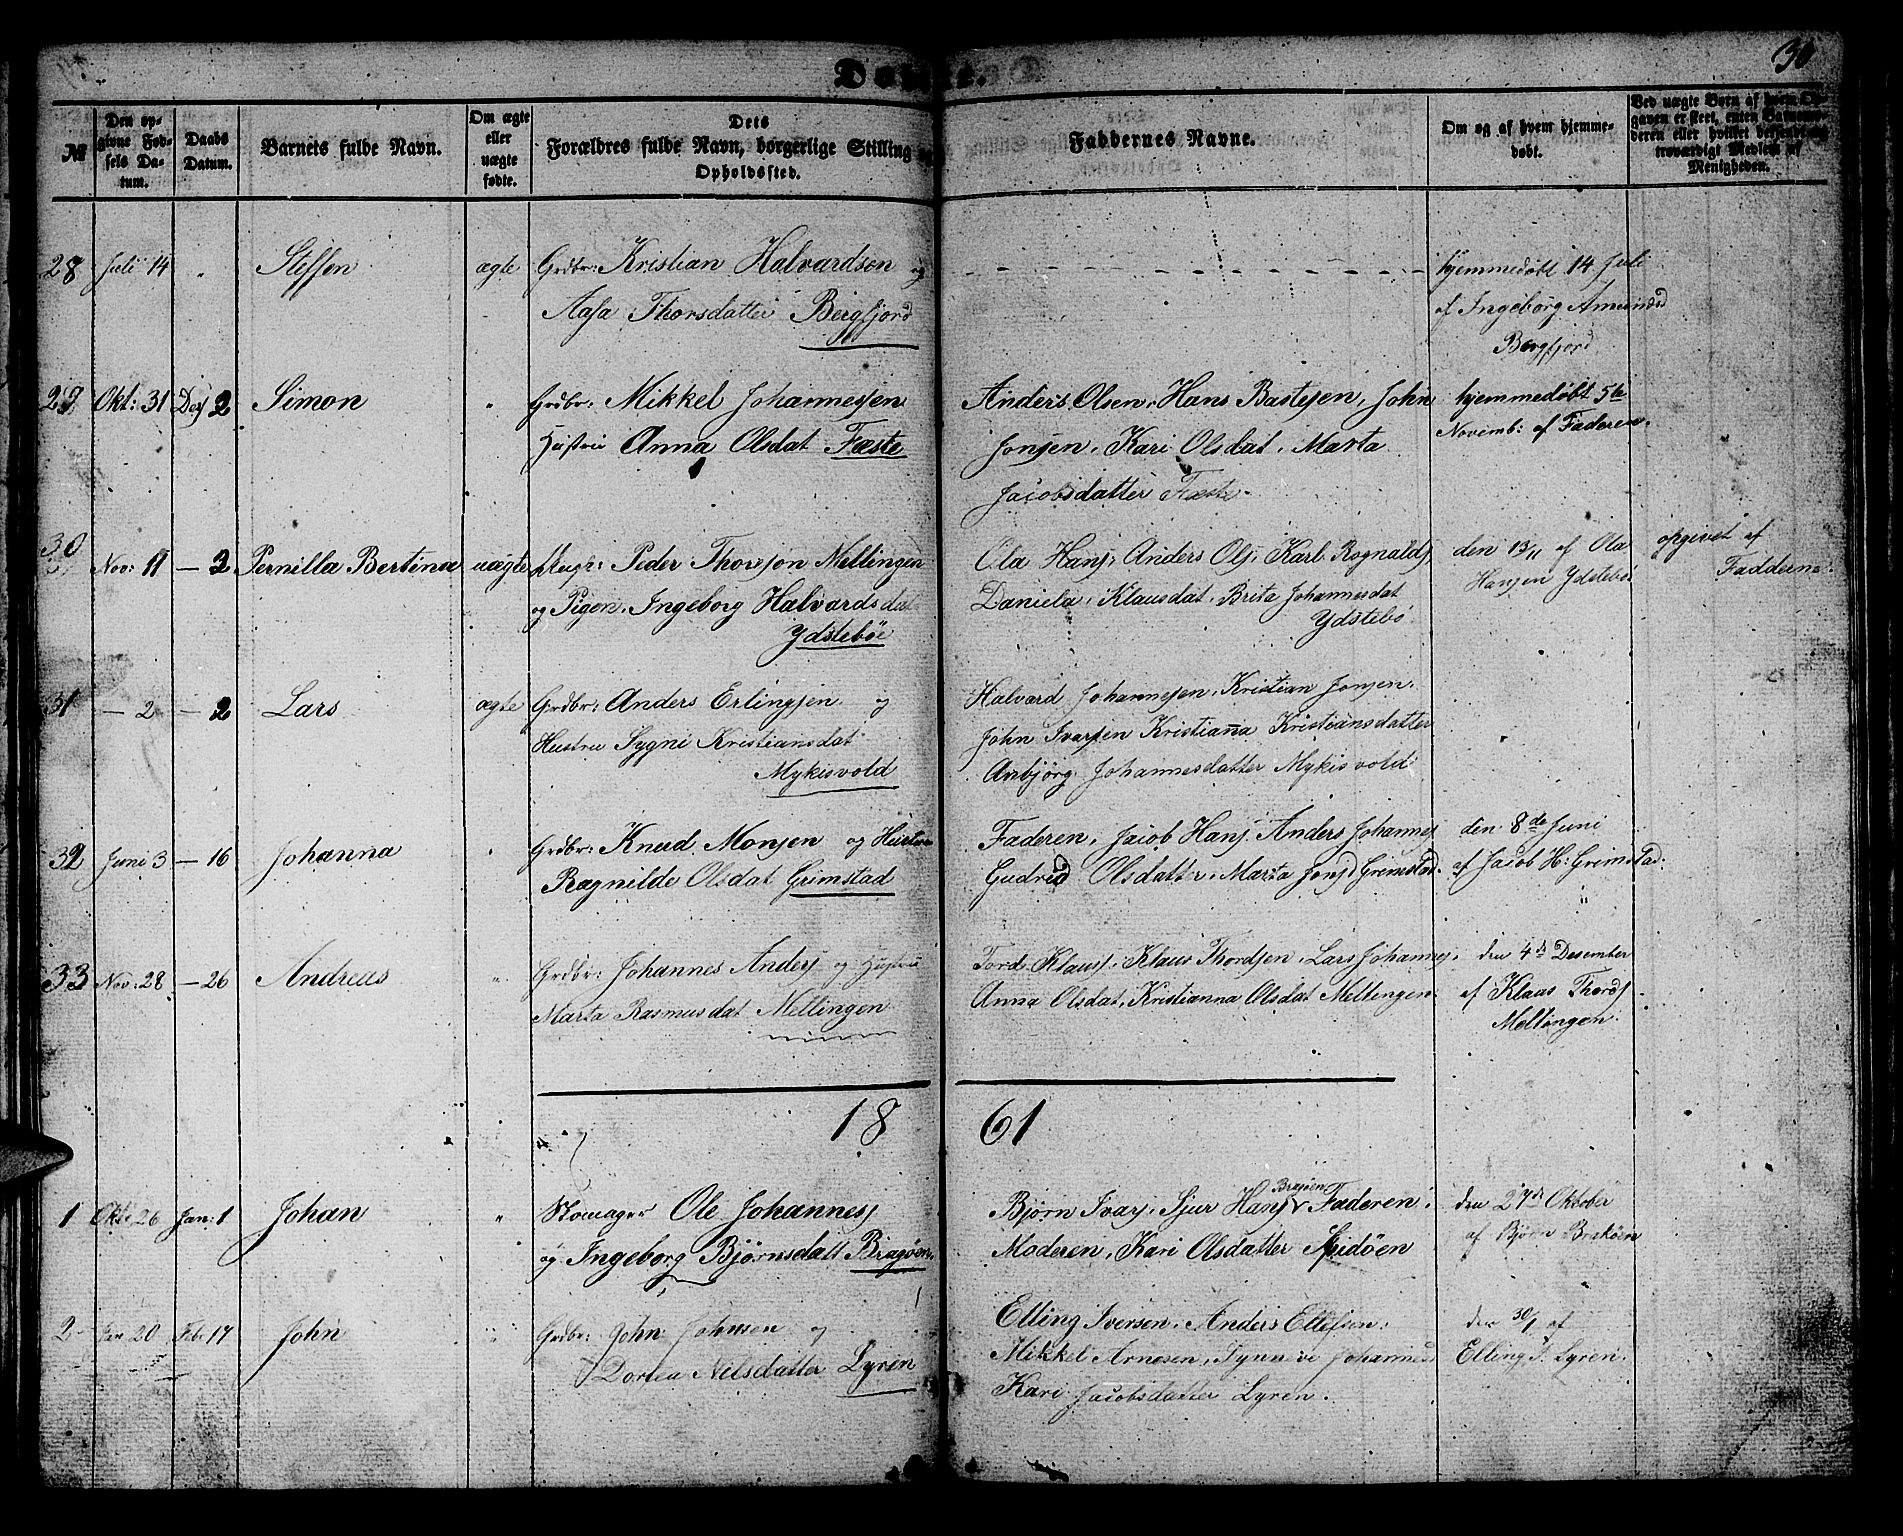 30
Døbte.
№
Den op-
givne Fød-
sels Da-
tum.
Daabs
Datum.
Barnets fulde Navn.
Om ægte
eller
uægte
fødte.
Dets
Forældres fulde Navn, borgerlige Stilling og
Opholdssted.
Faddernes Navne.
Om og af hvem hjemme-
døbt.
Ved uægte Børn af hvem Op-
gaven er skeet, enten Barnemo-
deren eller hvilket bekjendt og
troværdigt Medlem af
Menigheden.
28 Juli 14 " Steffen ægte Grdbr: Kristian Halvardsen og
Aasa Thorsdatter Bergfjord
hjemmedøbt 14 Juli
af Ingeborg Amundsd
Bergfjord
29 Okt: 31 Des 2 Simon " Grdbr: Mikkel Johannessen
Hustru Anna Olsdat Fæste
Anders Olsen, Hans Bastesen, John
Jonsen, Kari Olsdat, Marta
Jacobsdatter Fæste
hjemmedøbt 5te
Novemb: af Faderen.
30 Nov: 11 — 2 Pernilla Bertina uægte Ungk: Peder Thorsson Mellingen
og Pigen Ingeborg Halvardsdat
Ydstebøe
Ola Hans, Anders Ols, Karl Rognalds
Daniela Klausdat, Brita Johannesdat
Ydstebö
den 13/11 af Ola
Hansen Ydstebö
opgivet af
Fadderne.
31 — 2 — 2 Lars ægte Grdbr: Anders Erlingsen og
Hustru Sygni Kristiansdat
Mykisvold
Halvard Johannesen, Kristian Jonsen,
John Ivarsen Kristianna Kristiansdatter
Anbjörg Johannesdatter Mykisvold
32 Juni 3 — 16 Johanna " Grdbr: Knud Monsen og Hustru
Ragnilde Olsdat Grimstad
Faderen, Jacob Hans, Anders Johannes
Gudrid Olsdatter, Marta Jonsd Grimstad.
den 8de Juni
af Jacob H: Grimstad.
33 Nov: 28 — 26 Andreas " Grdbr: Johannes Anders og Hustru
Marta Rasmusdat Mellingen
Tord Klaus, Klaus Thordsen, Lars Johannes,
Anna Olsdat, Kristianna Olsdat Mellingen
den 4de Desember
af Klaas Thords
Mellingen
18 61
1 Okt: 26 Jan: 1 Johan " Ole Johannes
og Ingeborg Bjørnsdatt Bragøen.
Bragøen
Bjørn Ivars, Sjur Hans, Faderen,
Moderen, Kari Olsdatter
den 27de Oktober
af Bjørn Brakøen
2 Jan 20 Feb: 17 John " Grdbr: John Johnsen og
Dortea Nilsdatter Lyren
Elling Iversen, Anders Ellefsen,
Mikkel Arnesen, Johannesd
Kari Jacobsdatter Lyren.
den 30/1 af
Elling I. Lyren.